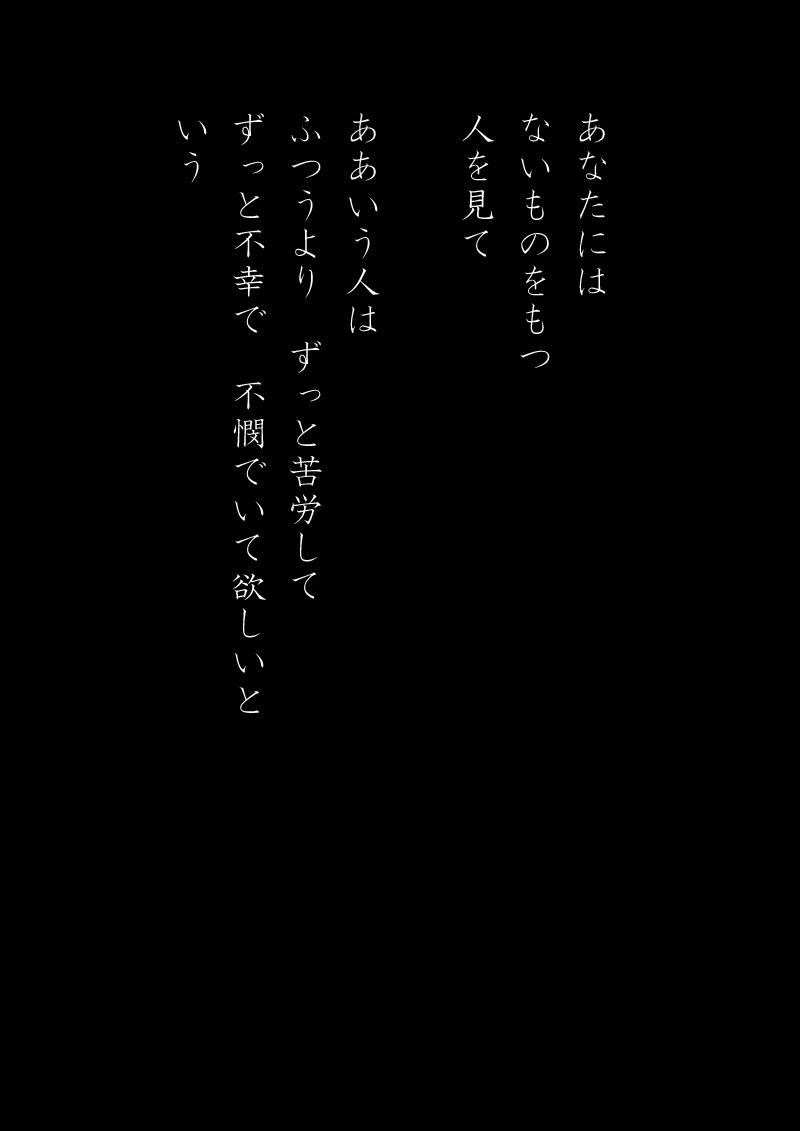 あなたには
ないものをもつ
人を見て
ああいう人は
ふつうより　ずっと苦労して
ずっと不幸で　不憫でいて欲しいと
いう